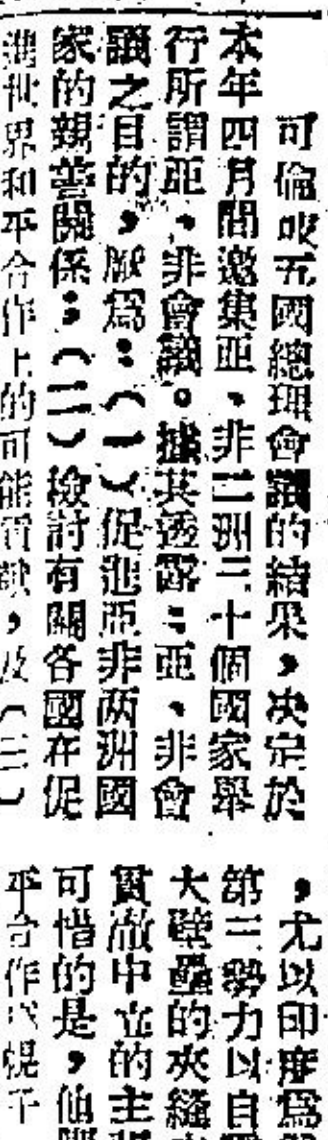 可倫坡五國總理會議的結果，決定於
本年四月間邀集亞、非二洲三十個國家舉
行所謂亞、非會議。據其透露：亞、非會
議之目的，厥爲：（一）促進亞非两洲國
家的親善關係；（二）檢討有關各國在促
進世界和平合作上的可能貢獻，及（三）
，尤以印度爲
第三勢力以自
大壁壘的夾縫
貫澈中立的主
可惜的是，他
平合作